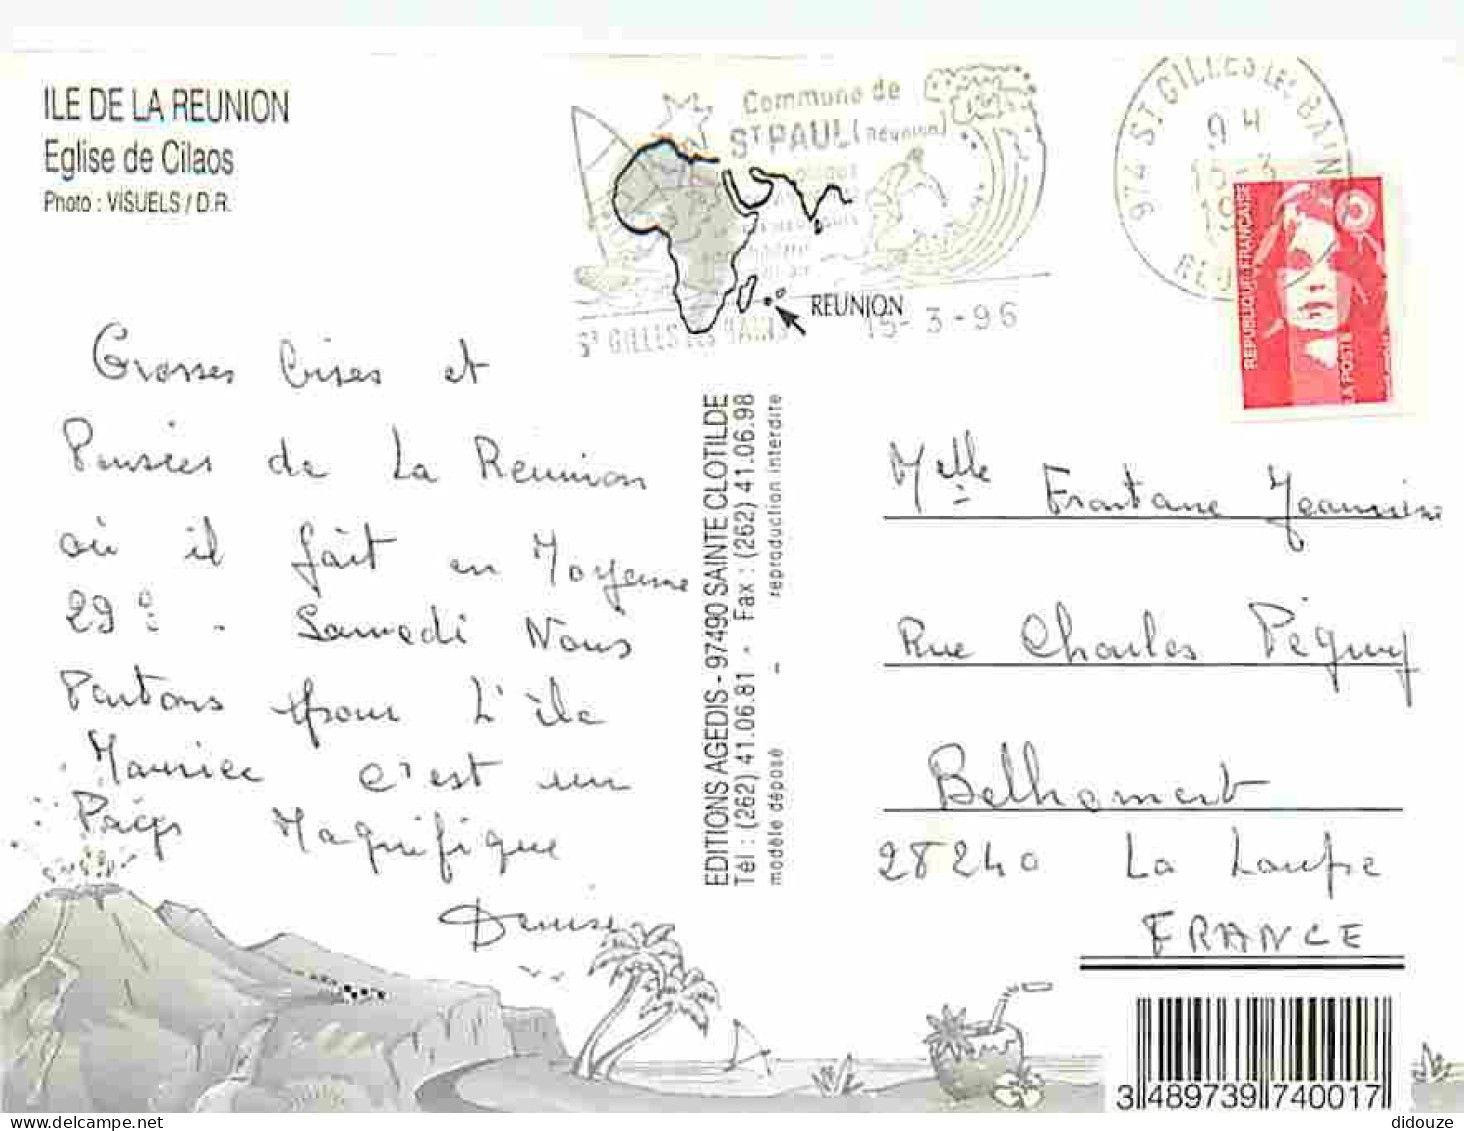 ILE DE LA REUNION
Eglise de Cilaos
Photo : VISUELS / D.R.
Commune de
ST PAUL (Réunion)
ST GILLES LES BAINS
15-3-96
REUNION
974 ST GILLES LES BAINS
9 H
15-3
19
REPUBLIQUE FRANÇAISE
LA POSTE
Grosses bises et
Pensées de La Reunion
où il fait en Moyenne
29°. Samedi Nous
Partons pour L'île
Maurice c'est un
Pays Magnifique
Denise
EDITIONS AGEDIS - 97490 SAINTE CLOTILDE
Tél : (262) 41.06.81 - Fax : (262) 41.06.98
modèle déposé - reproduction interdite
Melle Frontane Jeannine
Rue Charles Péguy
Belhomert
28240 La Loupe
FRANCE
3 489739 740017
didouze